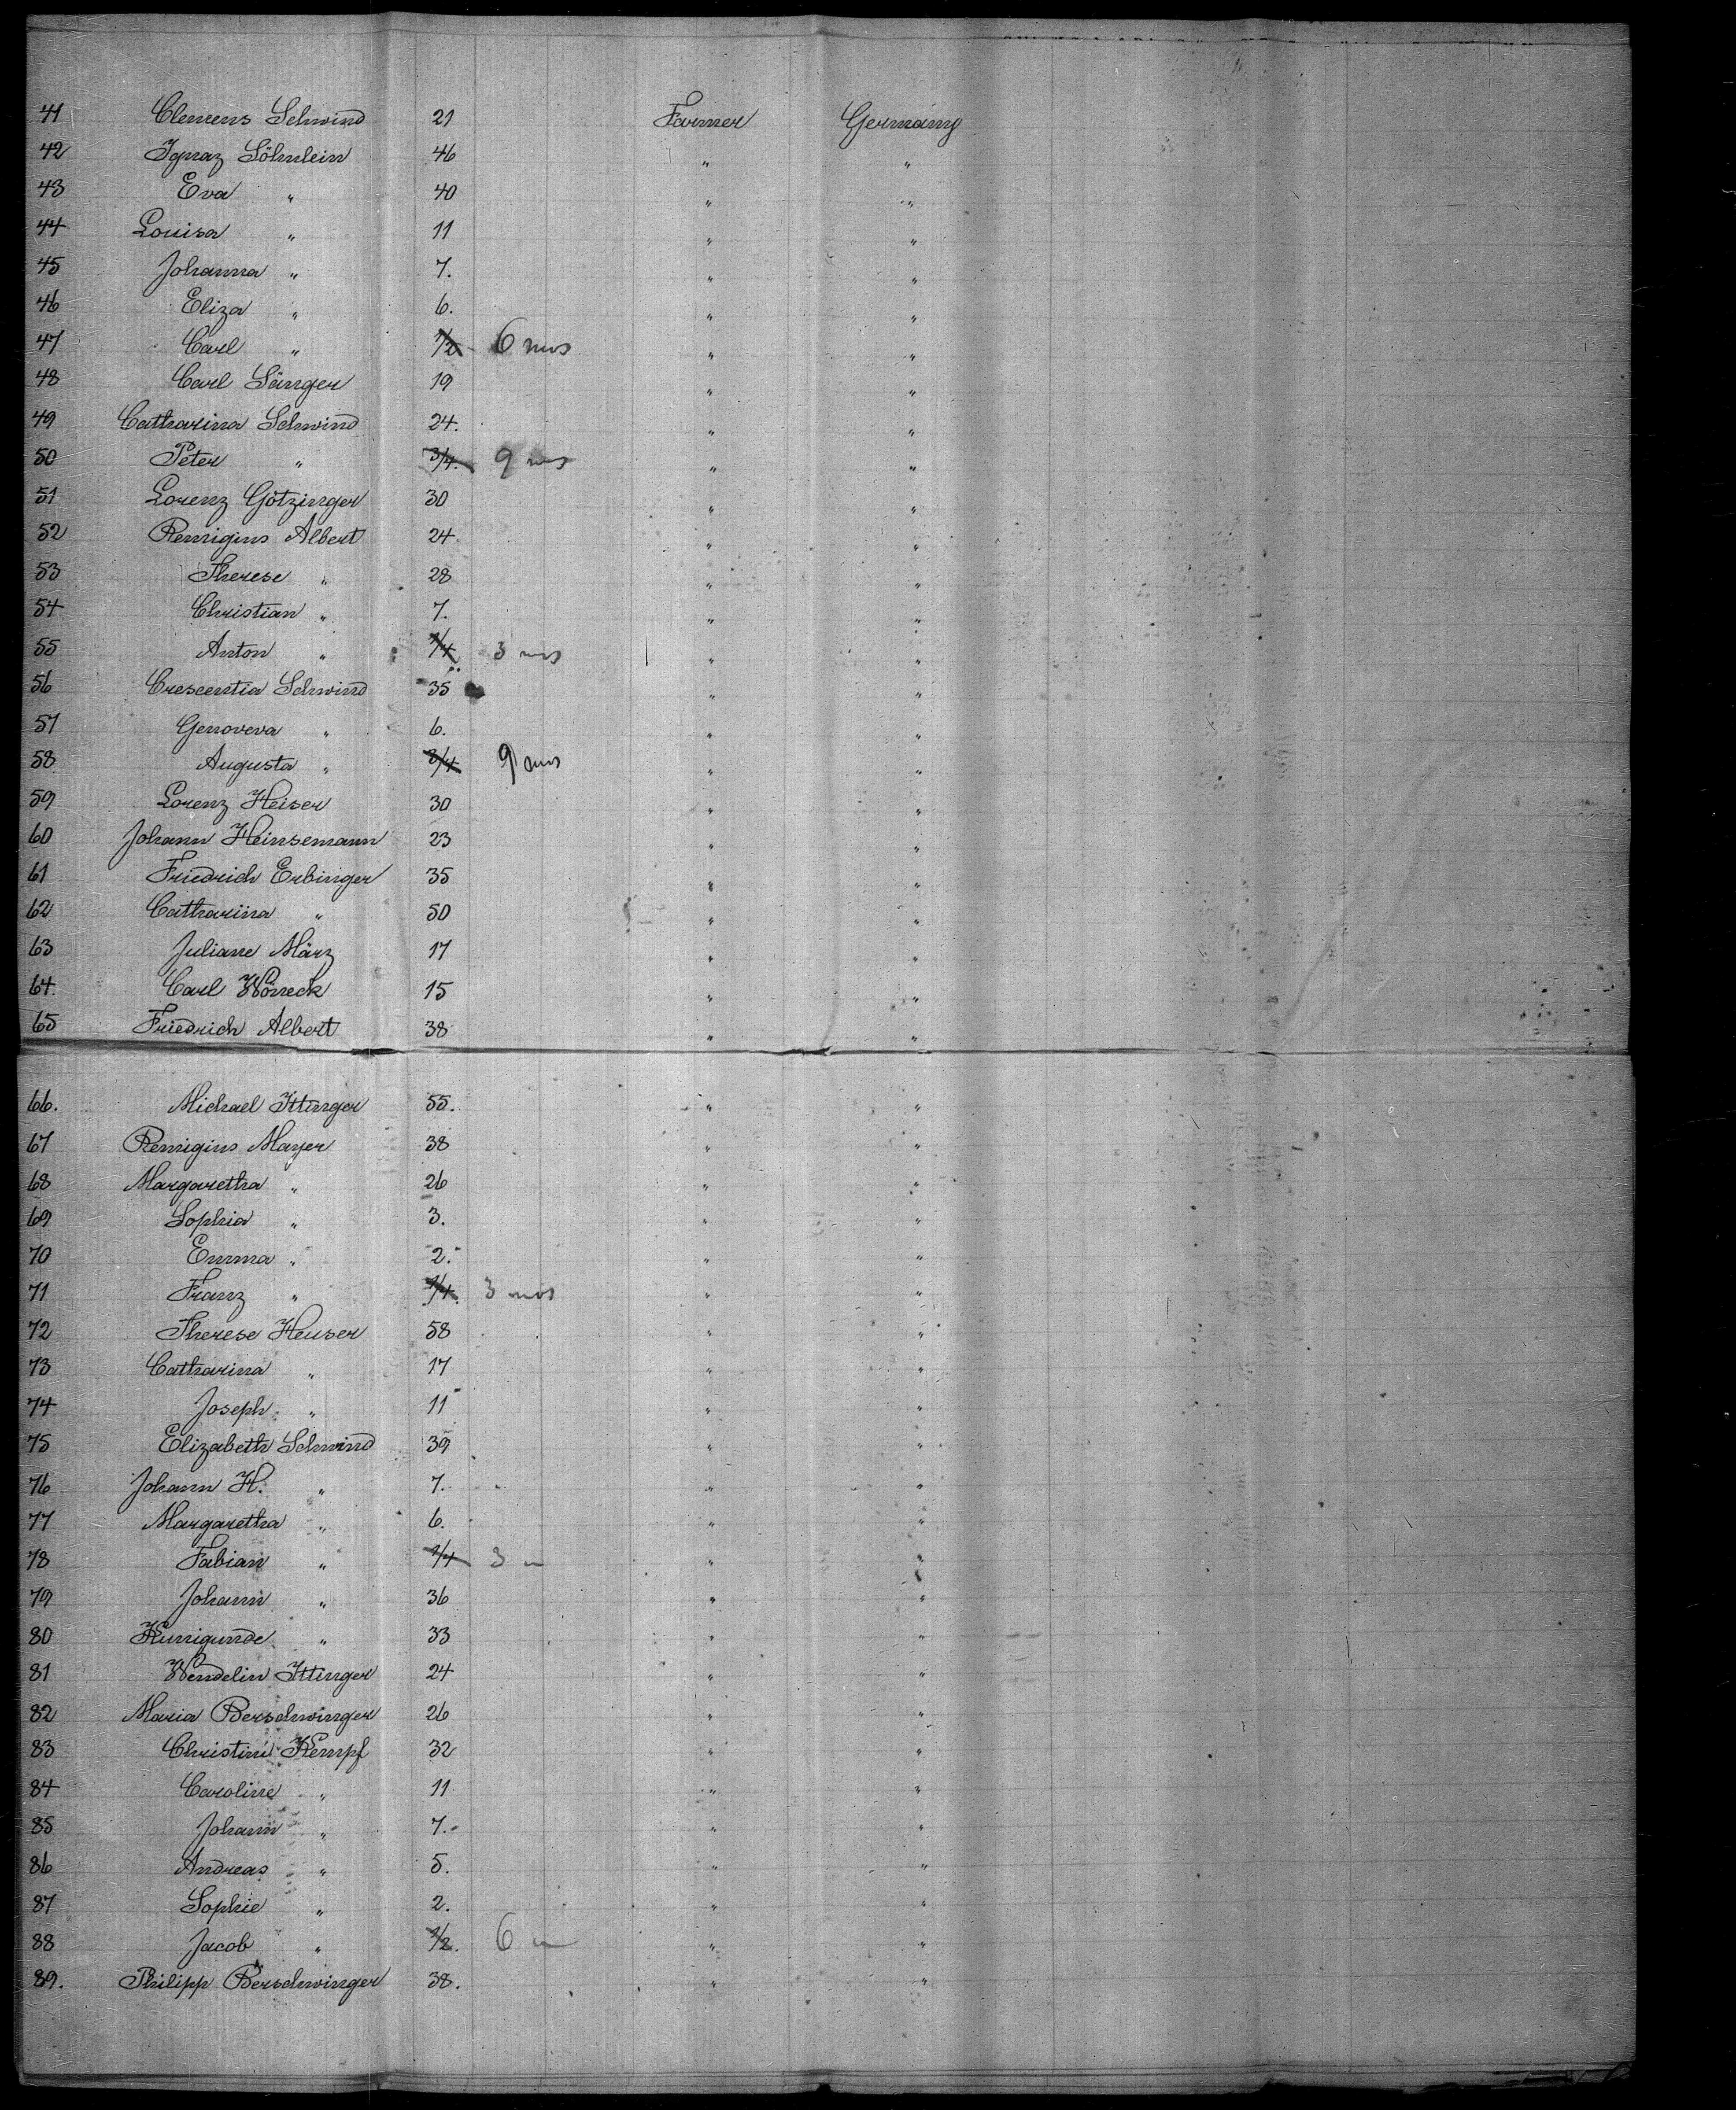 41 Clemens Schwind 21 Farmer Germany
42 Ignaz Söhnlein 46 " "
43 Eva " 40 " "
44 Louisa " 11 " "
45 Johanna " 7. " "
46 Eliza " 6. " "
47 Carl " 1/2 6 mos " "
48 Carl Sänger 19 " "
49 Catharina Schwind 24. " "
50 Peter " 3/4. 9 mos " "
51 Lorenz Götzinger 30 " "
52 Remigius Albert 24. " "
53 Therese " 28 " "
54 Christian " 7. " "
55 Anton " 1/4 3 mos " "
56 Crescentia Schwind 35 " "
57 Genoveva " 6. " "
58 Augusta " 3/4 9 mos " "
59 Lorenz Heiser 30 " "
60 Johann Heinsemann 23 " "
61 Friedrich Erbinger 35 " "
62 Catharina " 50 " "
63 Juliane März 17 " "
64. Carl 15 " "
65 Friedrich Albert 38 " "
66. Michael Ittinger 55. " "
67 Remigius Mayer 38 " "
68 Margaretha " 26 " "
69 Sophia " 3. " "
70 Emma " 2. " "
71 Franz " 1/4. 3 mos " "
72 Therese Heuser 58 " "
73 Catharina " 17 " "
74 Joseph " 11 " "
75 Elizabeth Schwind 39 " "
76 Johann H. " 7. " "
77 Margaretha " 6. " "
78 Fabian " 1/4 3 m " "
79 Johann " 36 " "
80 Kunigunde " 33 " "
81 Wendelin Ittinger 24 " "
82 Maria Berschwinger 26 " "
83 Christine Kempf 32 " "
84 Caroline " 11 " "
85 Johann " 7. " "
86 Andreas " 5. " "
87 Sophie " 2. " "
88 Jacob " 1/2. 6 m " "
89. Philipp Berschwinger 38. " "